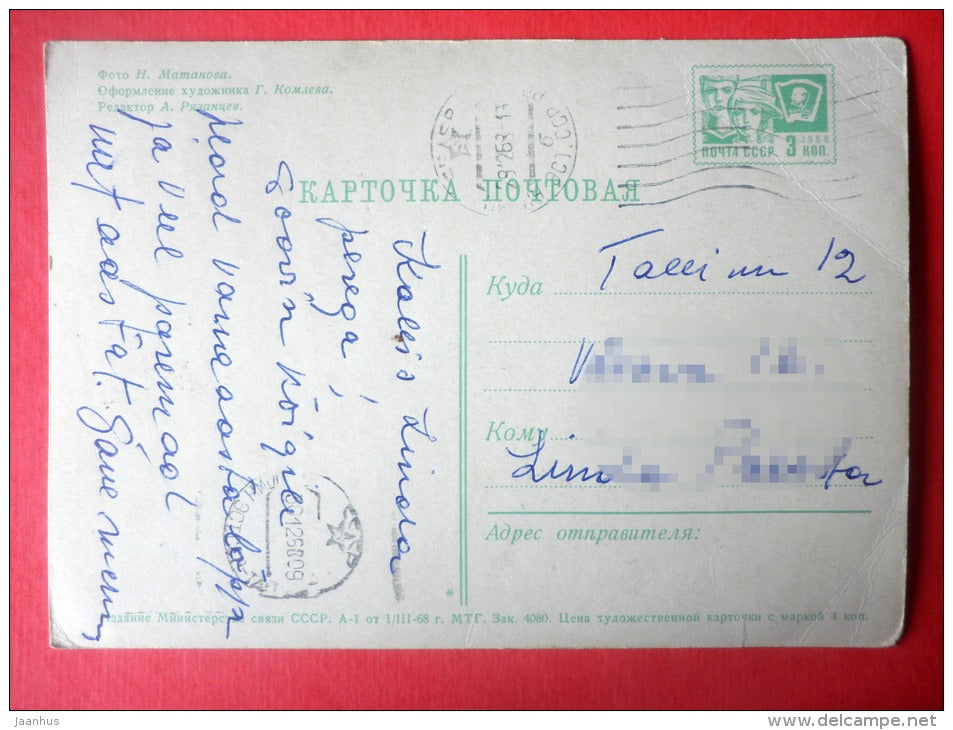 Фото Н. Матанова.
Оформление художника Г. Комлева.
Редактор А. Рязанцев.
ПОЧТА СССР 3 КОП.
1966
КАРТОЧКА ПОЧТОВАЯ
Kallis Linda
perega!
Soovin kõigile
head vana aasta lõppu
ja veel paremad
uut aastat.
Куда Tallinn 12
Кому
Linda
Адрес отправителя:
Издание Министерства связи СССР. А-1 от 1/III-68 г. МТГ. Зак. 4080. Цена художественной карточки с маркой 4 коп.
jaanhus
www.delcampe.net